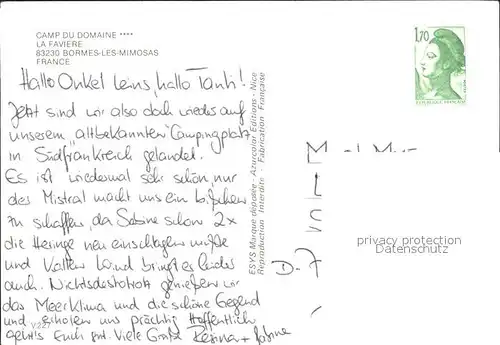 CAMP DU DOMAINE ****
LA FAVIERE
83230 BORMES-LES-MIMOSAS
FRANCE
1,70
REPUBLIQUE FRANÇAISE
Hallo Onkel Heins, hallo Tanti!
Jetzt sind wir also doch wieder auf
unserem "altbekannten" Campingplatz
in Südfrankreich gelandet.
Es ist wiedermal sehr schön, nur
der Mistral macht uns ein bißchen
zu schaffen, da Sabine schon 2x
die Heringe neu einschlagen mußte
und kalten Wind bringt es leider
auch. Nichtsdestotrotz genießen wir
das Meerklima und die schöne Gegend
und erholen uns prächtig. Hoffentlich
geht's Euch gut. Viele Grüße Regina + Sabine
V227
ESYS Marque déposée - Azurcolor Editions - Nice
Reproduction Interdite - Fabrication Française
D-7
privacy protection
Datenschutz